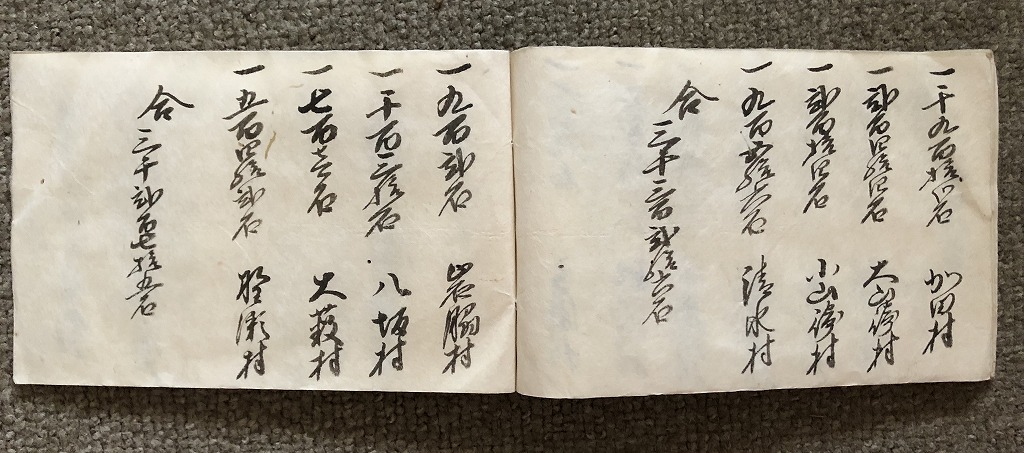 一千九百拾弐石 加田村
一弐百四拾四石
一弐百拾四石
一九百五拾六石 清水村
合三千三百弐拾六石
一九百弐石 岩脇村
一千百三拾石 八坂村
一七百壱石 大藪村
一五百四拾弐石 野瀬村
合三千弐百七拾五石